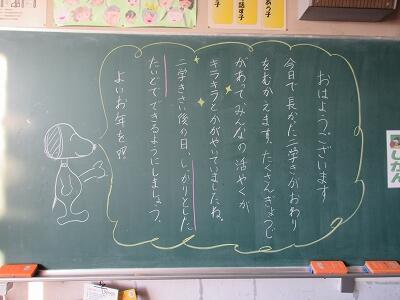 おはようございます
今日で長かった二学きがおわり
をむかえます。たくさんぎょうじ
があってみんなの活やくが
キラキラとかがやいていましたね。
二学きさい後の日、しっかりとした
たいどでできるようにしましょう。
よいお年を!!